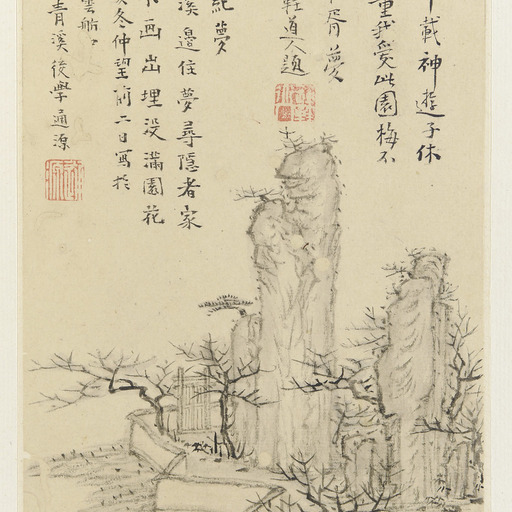 載神遊子休
重我愛此園梅不
胥夢
道人題
紀夢
溪邊住夢尋隱者家
画出埋没滿園花
冬仲望前二日寫於
雲舫
青溪後學通源